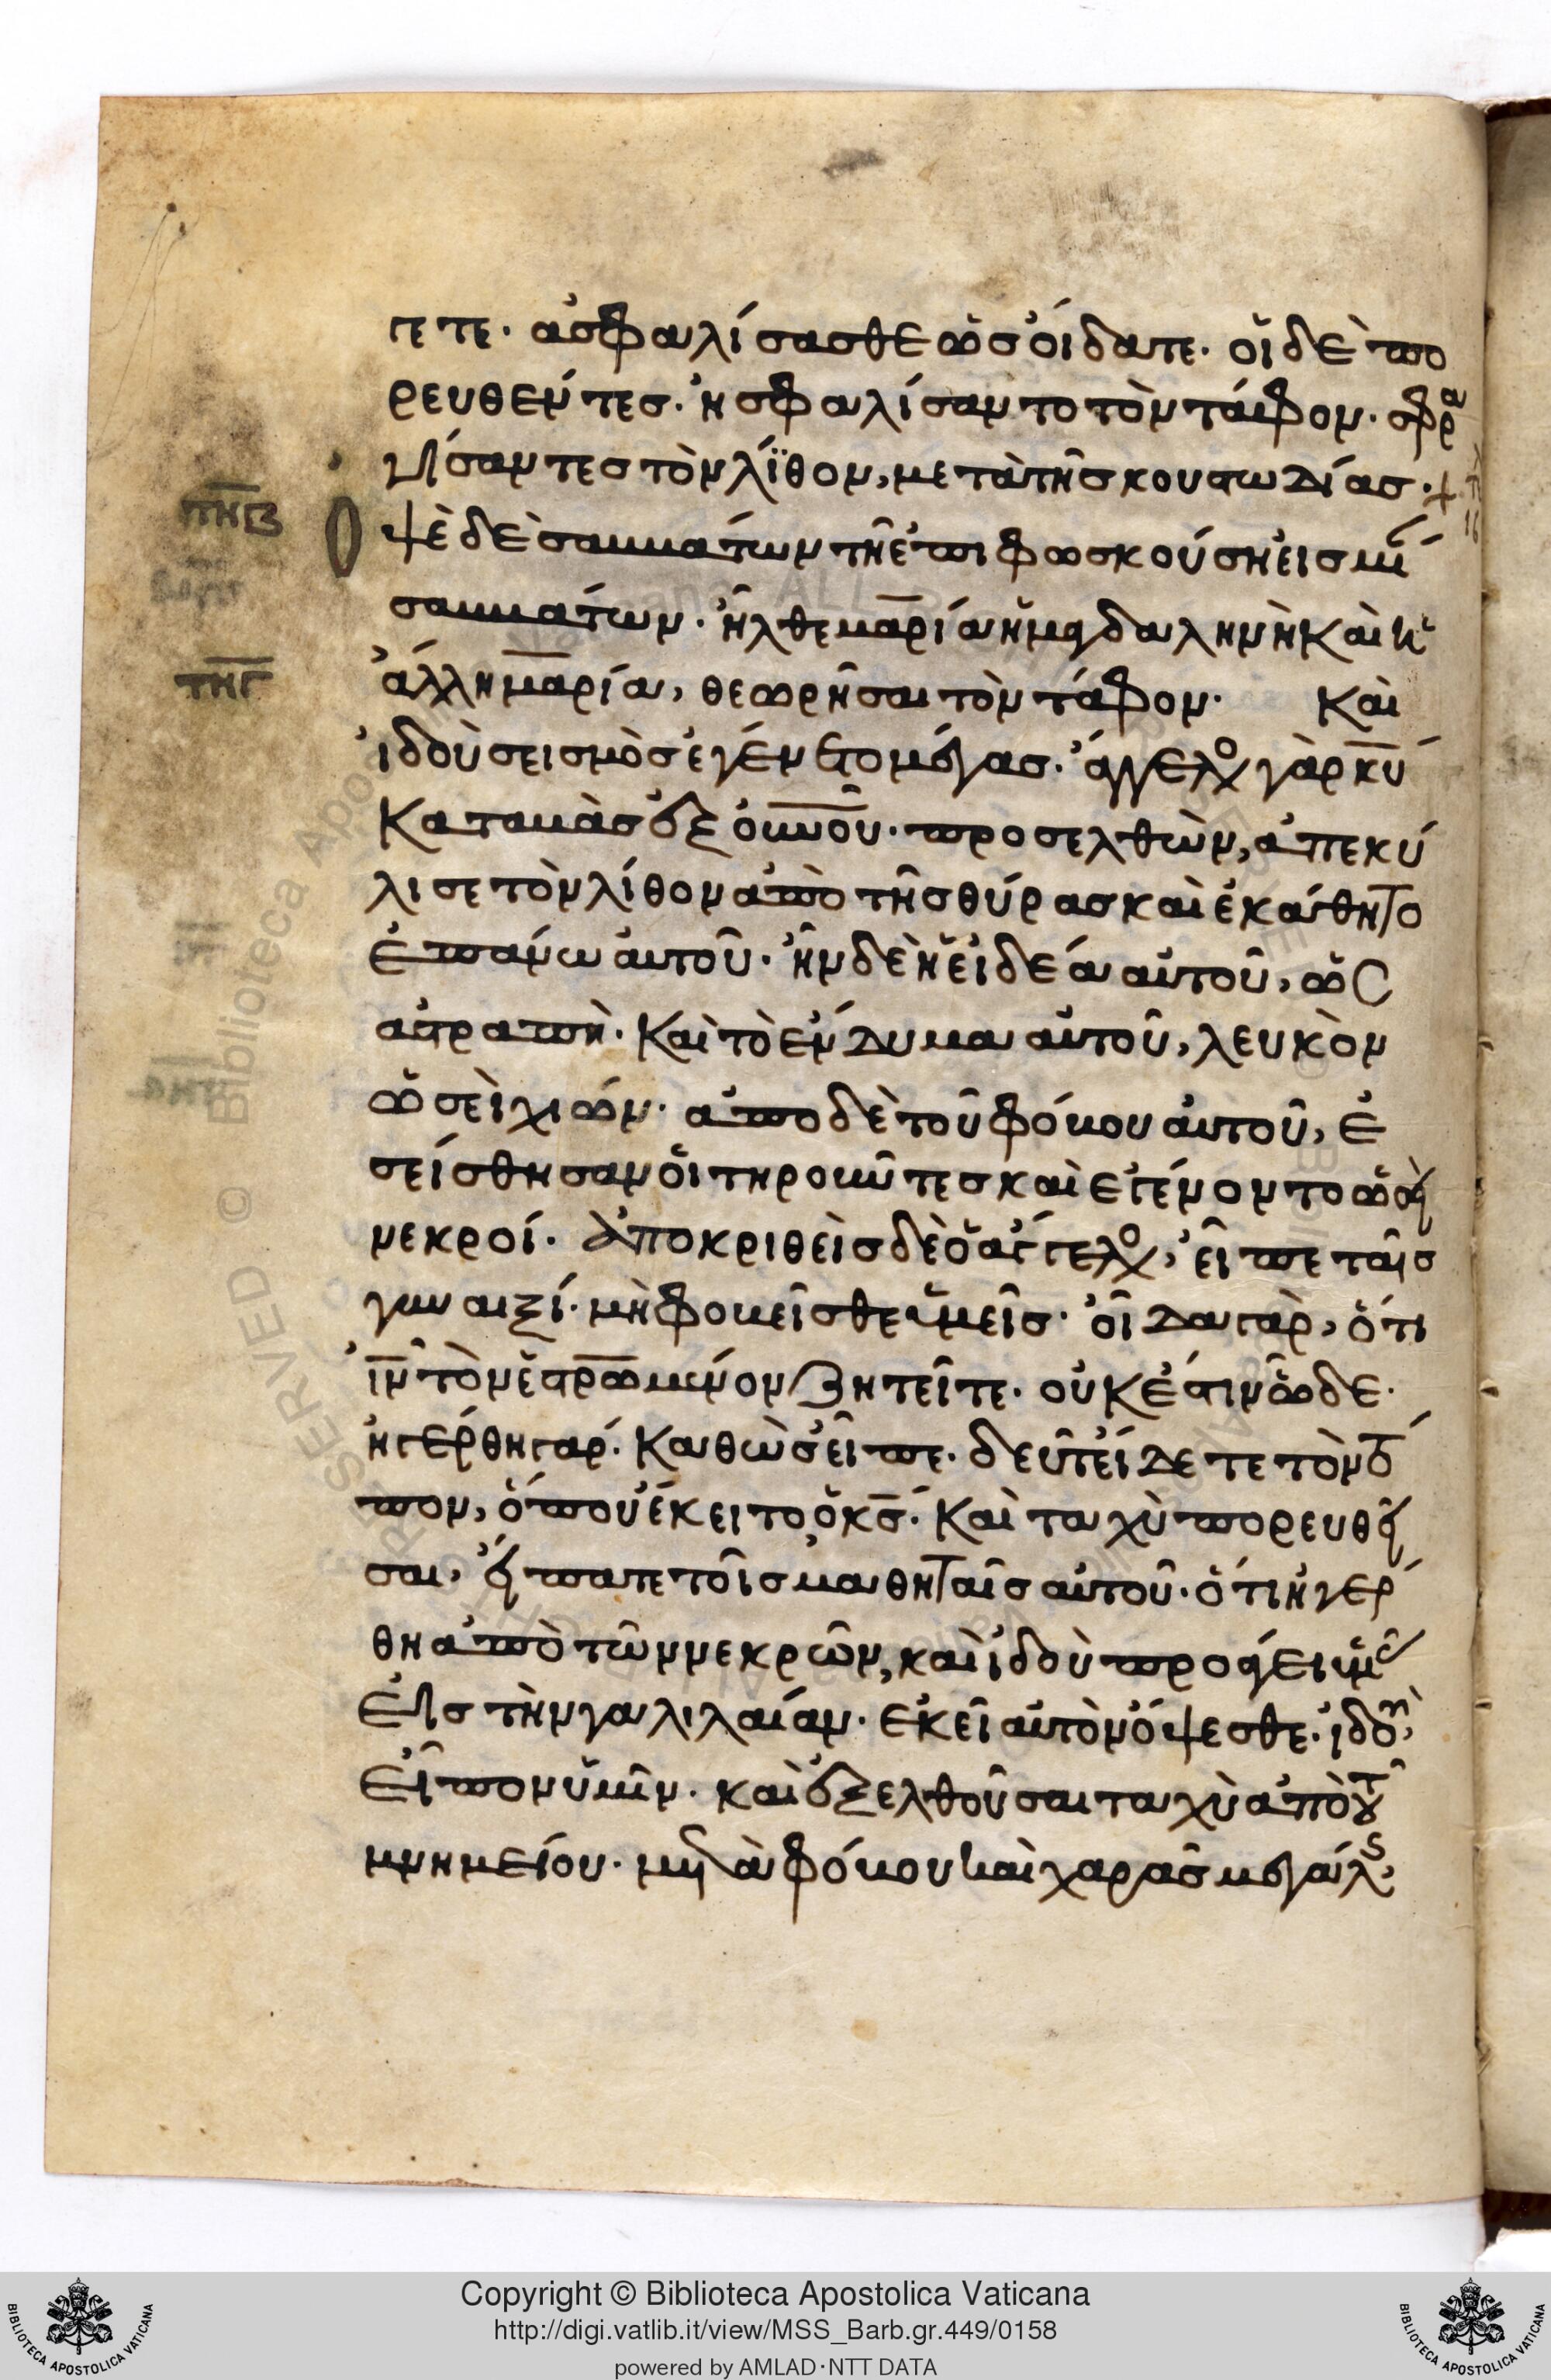 γετε· ἀσφαλίσασθε ὡς οἴδατε· οἱ δὲ πο
ρευθέντες· ἠσφαλίσαντο τὸν τάφον· σφρα
γίσαντες τὸν λίθον, μετὰ τῆς κουστωδίας·
Ὀψὲ δὲ σαββάτων τῆ ἐπιφωσκούση εἰς μί
σαββάτων· ἦλθε μαρία ἡ μαγδαληνὴ καὶ ἡ
ἄλλη μαρία, θεωρῆσαι τὸν τάφον· Καὶ
ἰδοὺ σεισμὸς ἐγένετο μέγας· ἄγγελος γὰρ κυ
καταβὰς ἐξ οὐνοῦ· προσελθὼν, ἀπεκύ
λισε τὸν λίθον ἀπὸ τῆς θύρας καὶ ἐκάθητο
ἐπάνω αὐτοῦ· ἦν δὲ ἡ εἰδέα αὐτοῦ, ὡς
ἀστραπὴ· καὶ τὸ ἔνδυμα αὐτοῦ, λευκὸν
ὡσεὶ χιών· ἀπο δὲ τοῦ φόβου αὐτοῦ, ἐ
σείσθησαν οἱ τηροῦντες καὶ ἐγένοντο ὡσεὶ
νεκροί· ἀποκριθεὶς δὲ ὁ ἄγγελος, εἶπε ταῖς
γυναιξί· μὴ φοβεῖσθε ὑμεῖς· οἶδα γὰρ, ὅτι
ἰν τὸν ἐστρωμένον ζητεῖτε· οὐκ ἔστιν ὧδε·
ἠγέρθη γάρ· καθὼς εἶπε· δεῦτε ἴδετε τὸν τό
πον, ὅπου ἔκειτο ὁ κς· καὶ ταχὺ πορευθεῖ
σαι, εἴπατε τοῖς μαθηταῖς αὐτοῦ· ὅτι ἠγέρ
θη ἀπὸ τῶν νεκρῶν, καὶ ἰδοὺ προάγει ὑμᾶς
εἰς τὴν γαλιλαίαν· ἐκεῖ αὐτὸν ὄψεσθε· ἰδοὺ,
εἶπον ὑμῖν· καὶ ἐξελθοῦσαι ταχὺ ἀπὸ τοῦ
μνημείου· μετὰ φόβου καὶ χαρᾶς μεγάλης,
τηβ
τηγ
Copyright © Biblioteca Apostolica Vaticana
http://digi.vatlib.it/view/MSS_Barb.gr.449/0158
powered by AMLAD·NTT DATA
BIBLIOTECA APOSTOLICA VATICANA
BIBLIOTECA APOSTOLICA VATICANA